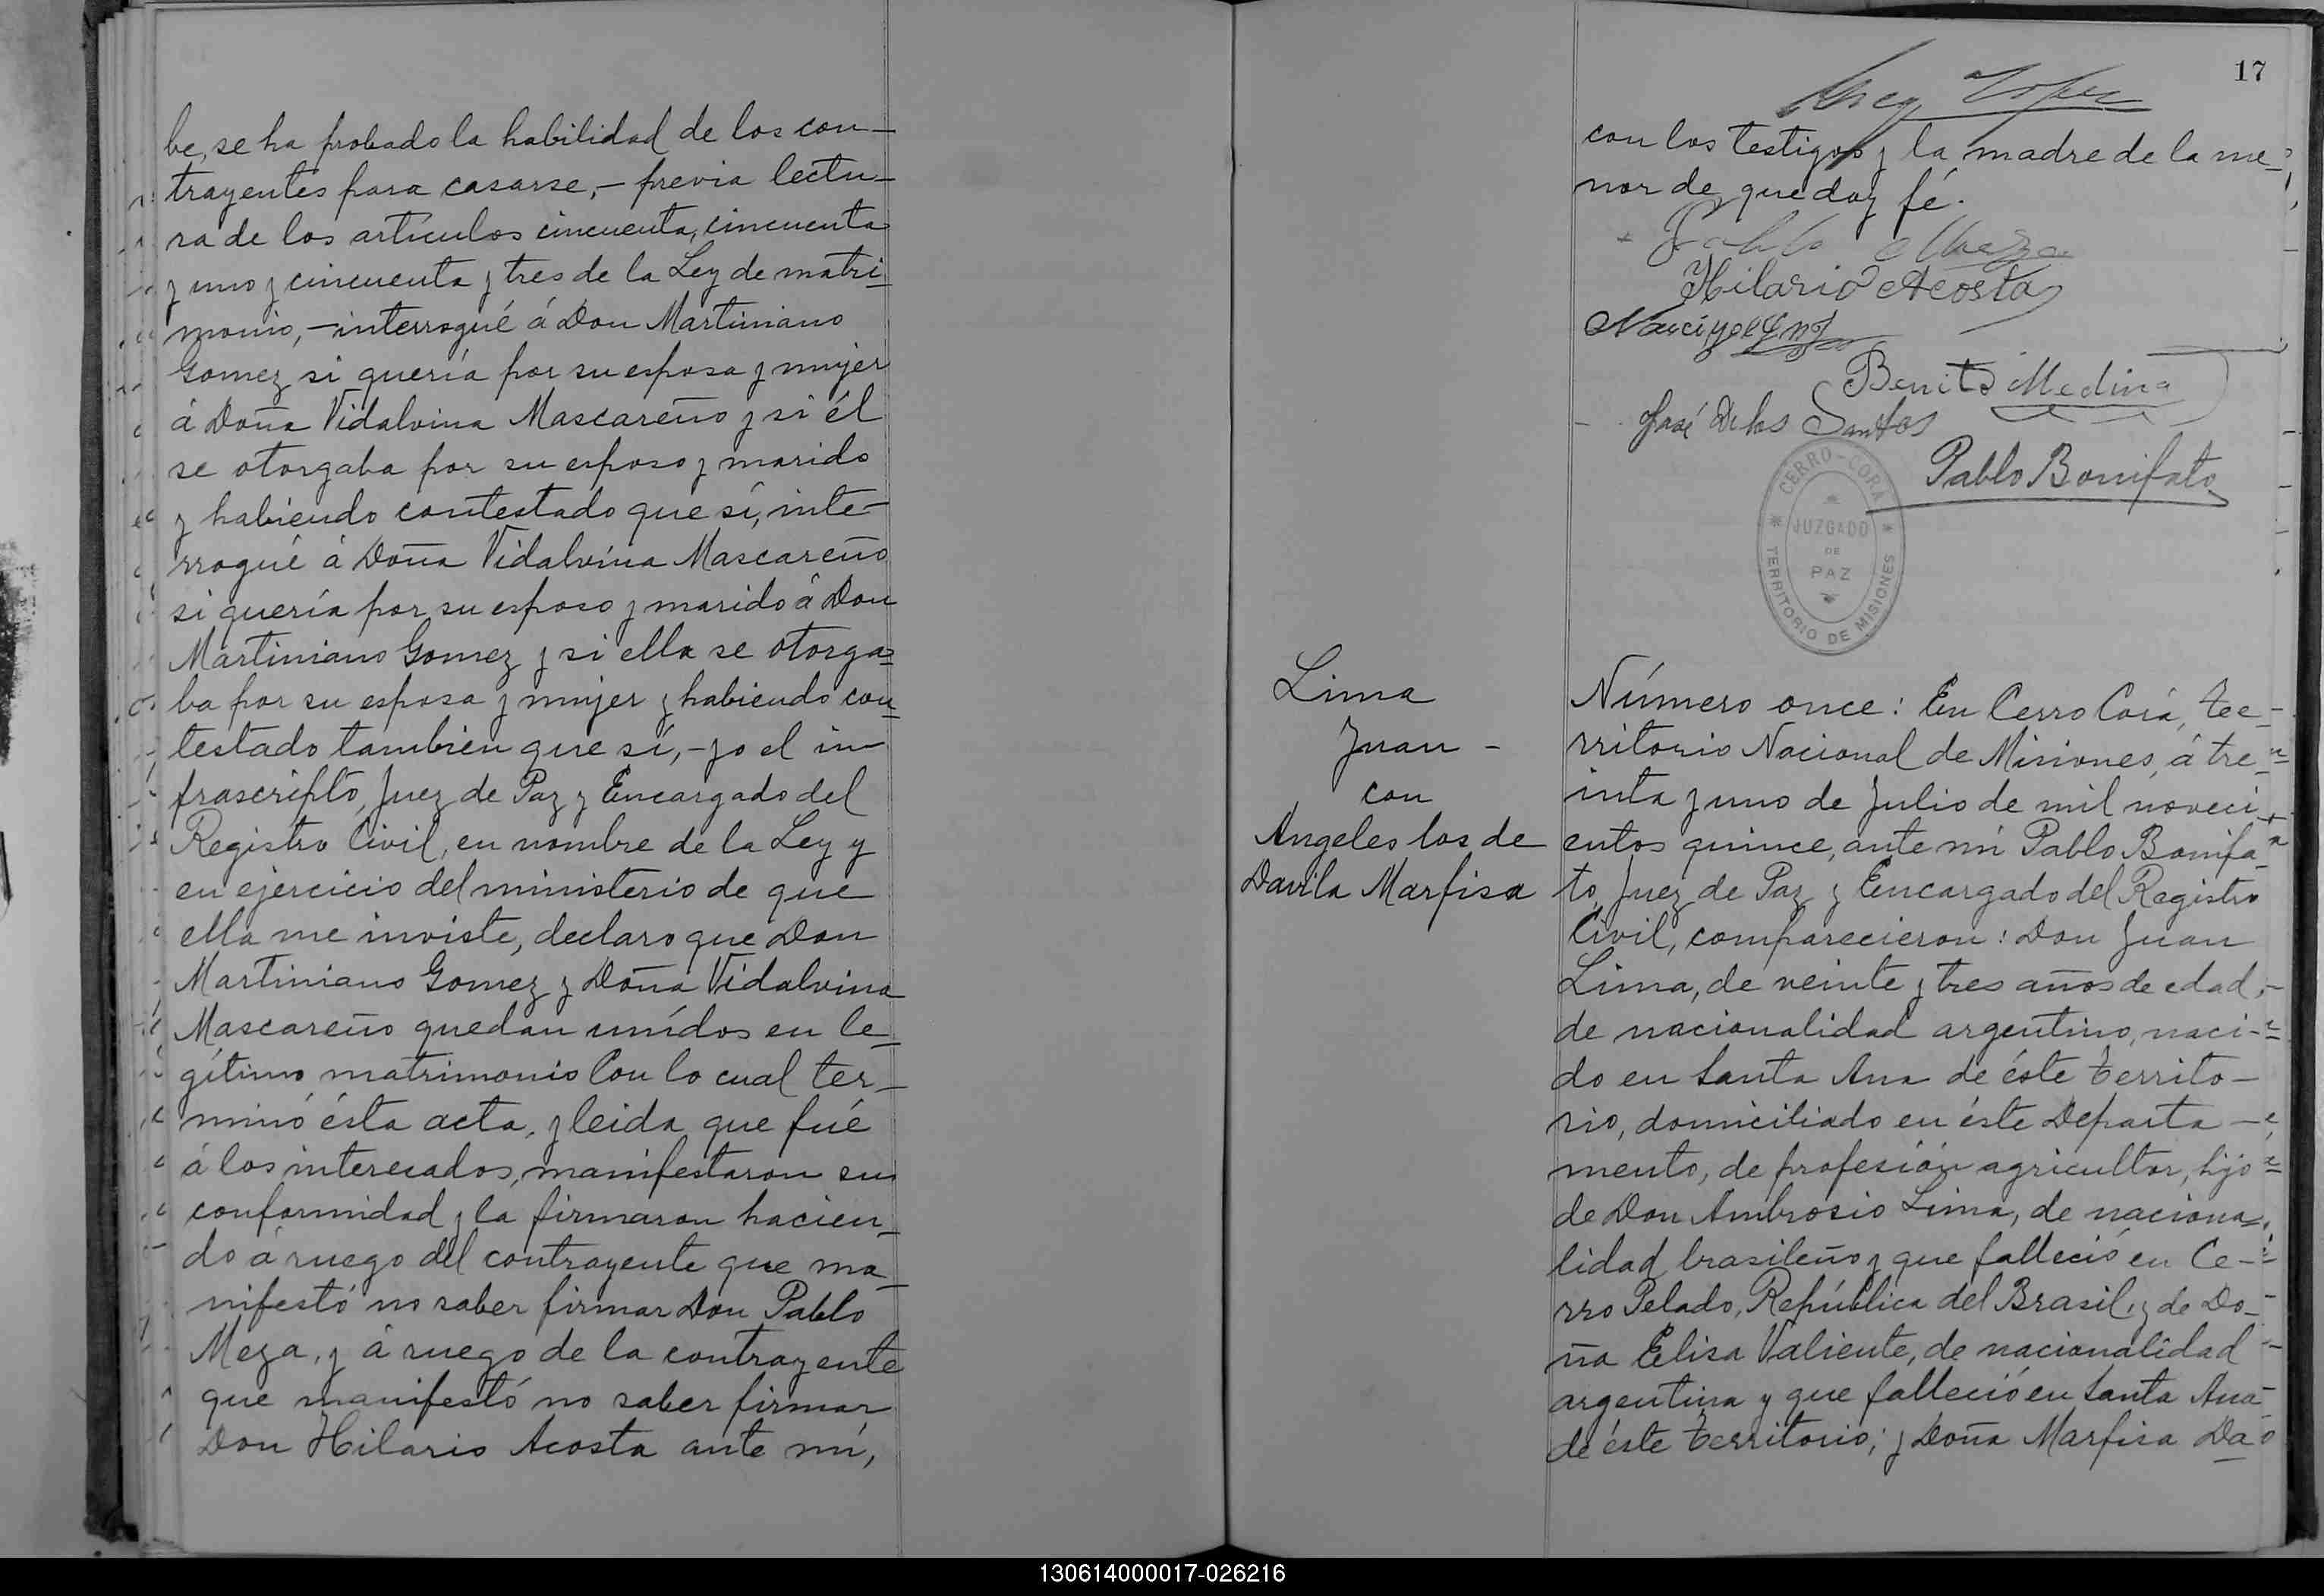 be, se ha probado la habilidad de los con-
trayentes para casarse,- previa lectu-
ra de los artículos cincuenta, cincuenta
y uno y cincuenta y tres de la Ley de matri-
monio,- interrogué á Don Martiniano
Gomez si quería por su esposa y mujer
á Doña Vidalvina Mascareño y si él
se otorgaba por su esposo y marido
y habiendo contestado que sí, inte-
rrogué á Doña Vidalvina Mascareño
si quería por su esposo y marido á Don
Martiniano Gomez y si ella se otorga-
ba por su esposa y mujer y habiendo con-
testado tambien que sí,- yo el in-
frascripto, Juez de Paz y Encargado del
Registro Civil, en nombre de la Ley y
en ejercicio del ministerio de que
ella me inviste, declaro que Don
Martiniano Gomez y Doña Vidalvina
Mascareño quedan unídos en le-
gítimo matrimonio Con lo cual ter-
minó ésta acta, y leida que fué
á los interesados, manifestaron su
conformidad y la firmaron hacien-
do á ruego del contrayente que ma-
nifestó no saber firmar Don Pablo
Meza, y á ruego de la contrayente
que manifestó no saber firmar
Don Hilario Acosta ante mí,
17
con los testigos y la madre de la me-
nor de que doy fé.
Pablo Meza
Hilario Acosta
Benito Medina
José De los Santos
Pablo Bonifato
CERRO-CORA
JUZGADO
DE
PAZ
TERRITORIO DE MISIONES
Lima
Juan -
con
Angeles los de
Davila Marfisa
Número once: En Cerro Corá, Te-
rritorio Nacional de Misiones, á tre-
inta y uno de Julio de mil noveci-
entos quince, ante mí Pablo Bonifa-
to, Juez de Paz y Encargado del Registro
Civil, comparecieron: Don Juan
Lima, de veinte y tres años de edad,-
de nacionalidad argentino, naci-
do en Santa Ana de éste territo-
rio, domiciliado en éste Departa-
mento, de profesión agricultor, hijo
de Don Ambrosio Lima, de naciona-
lidad brasileño y que falleció en Ce-
rro Pelado, República del Brasil, y de Do-
ña Elisa Valiente, de nacionalidad
argentina y que falleció en Santa Ana
de éste territorio; y Doña Marfisa Da
130614000017-026216